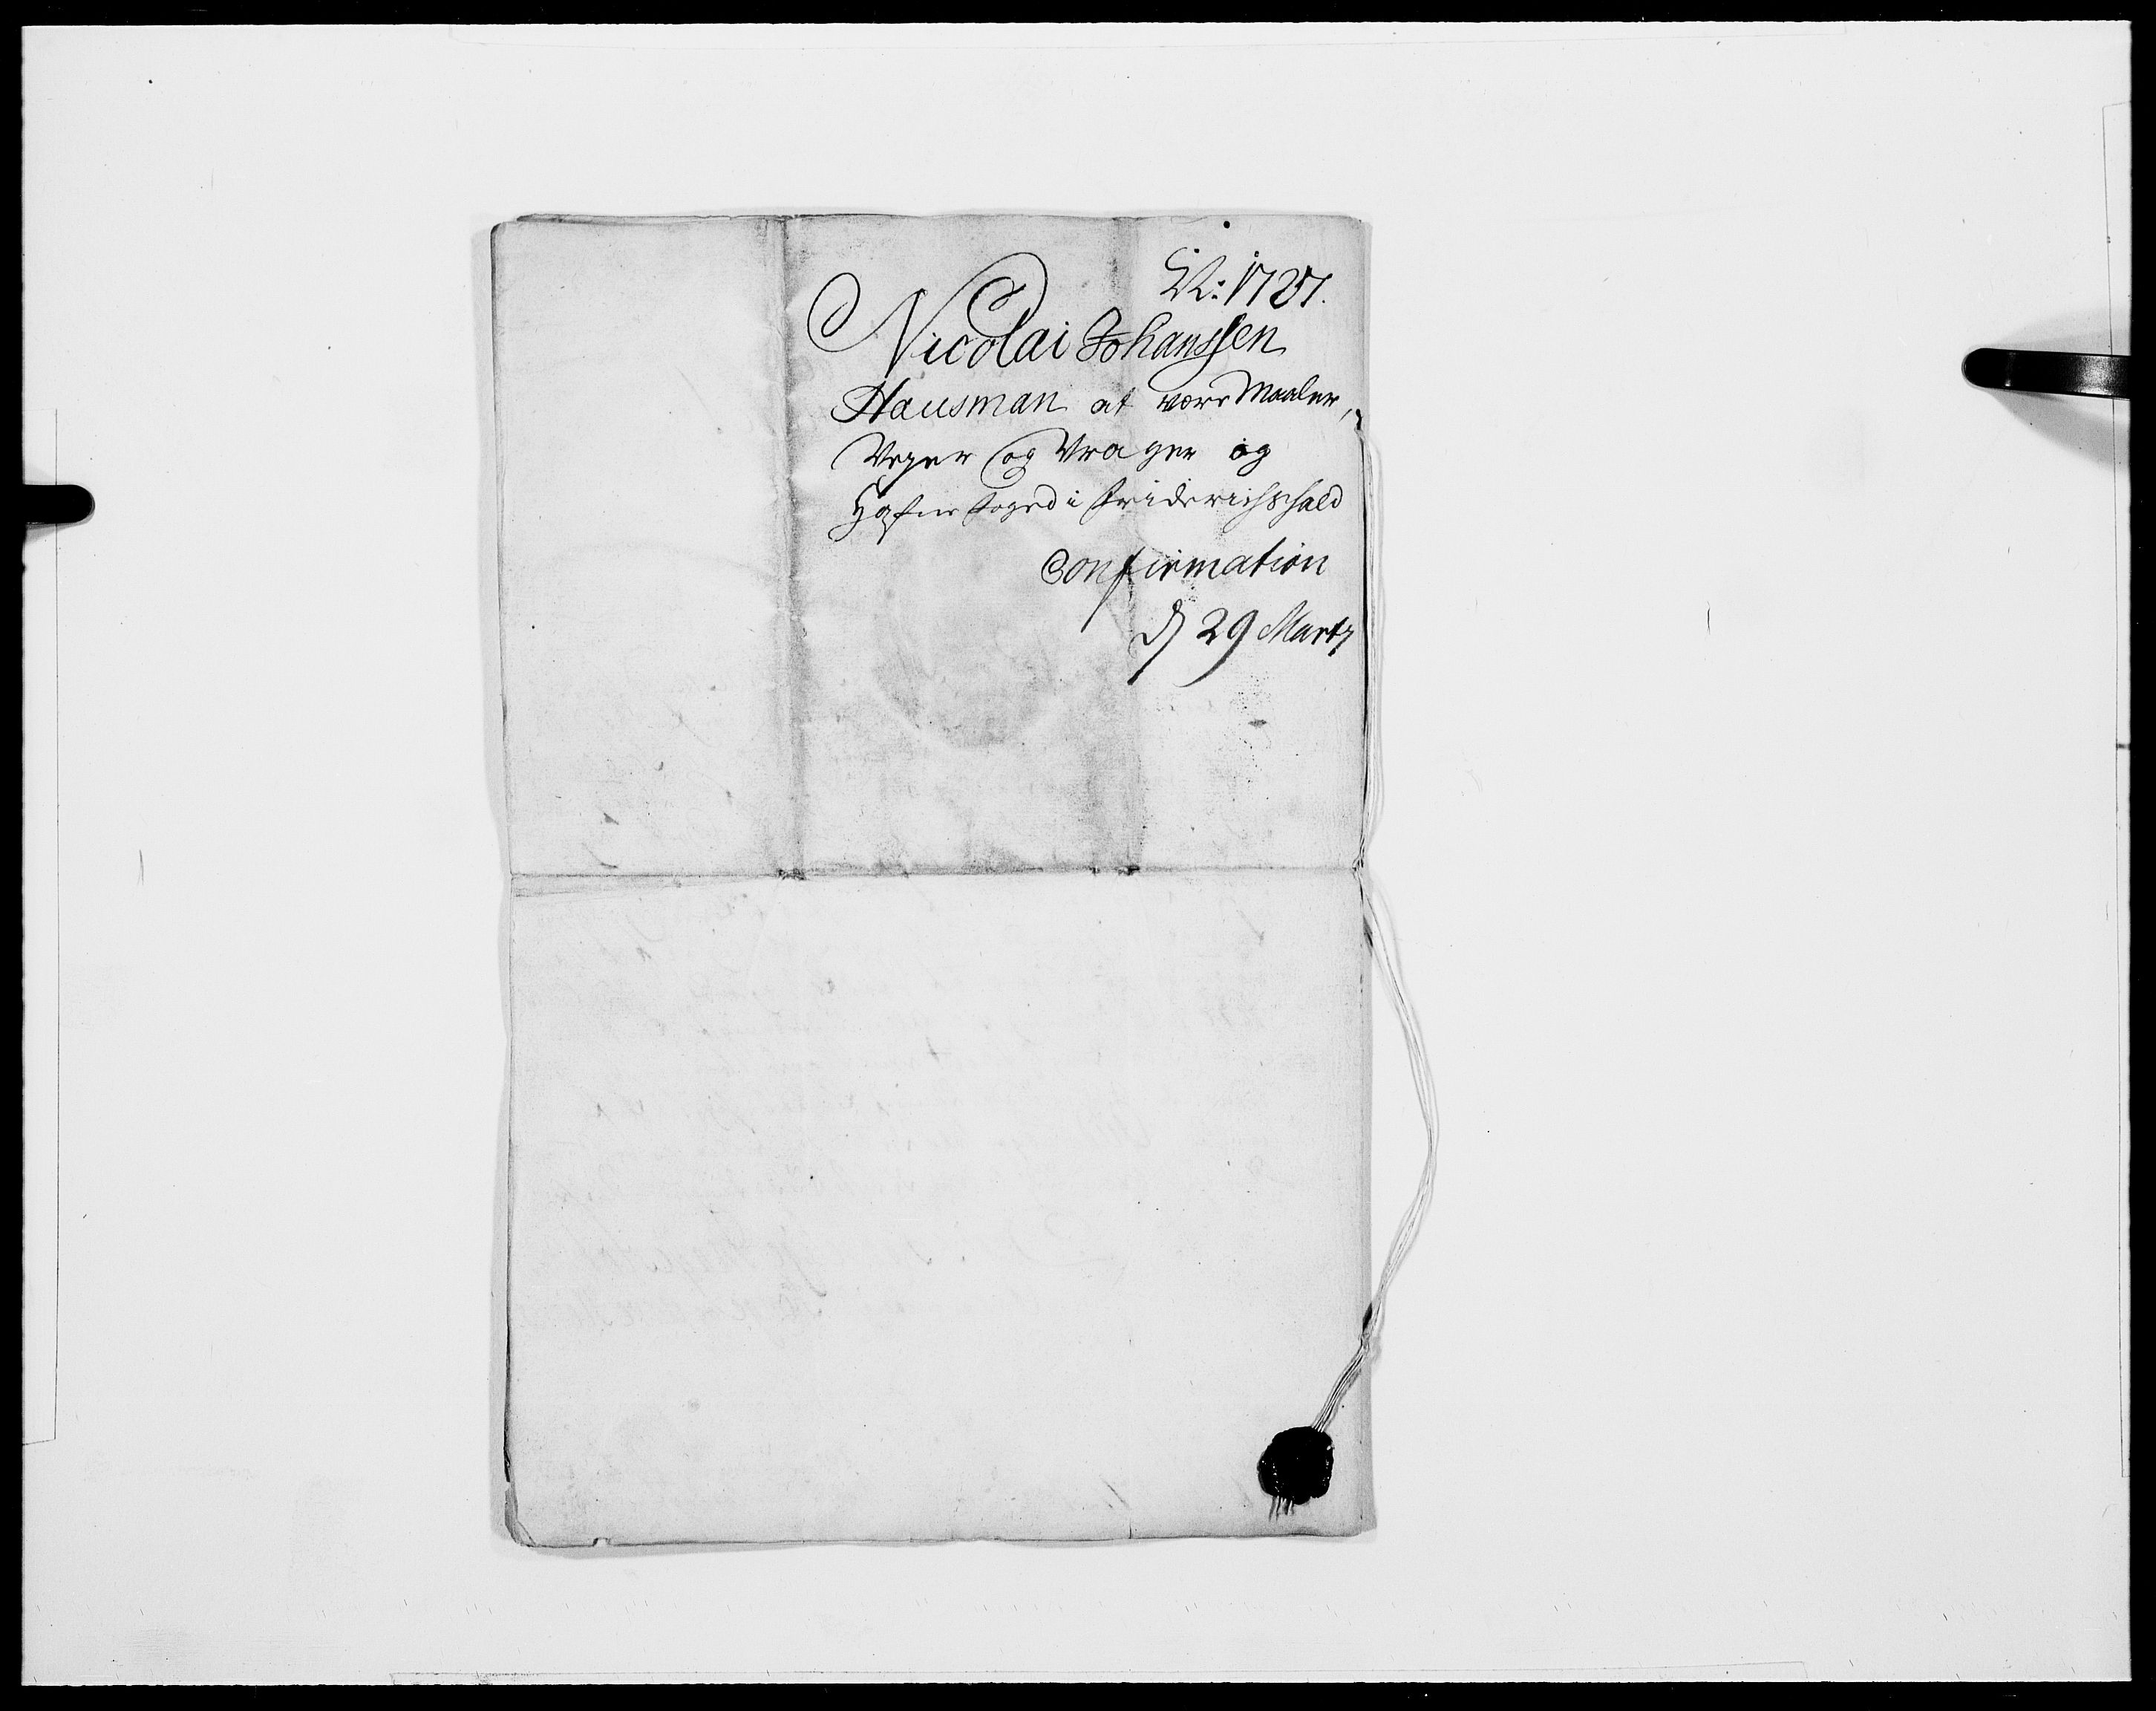 No: 1727.
Nicolai Johanssen
Hausman at være Maaler,
Vejer og Vrager og
Hafne foged i Friderichshald
Confirmation
d 29 Marty